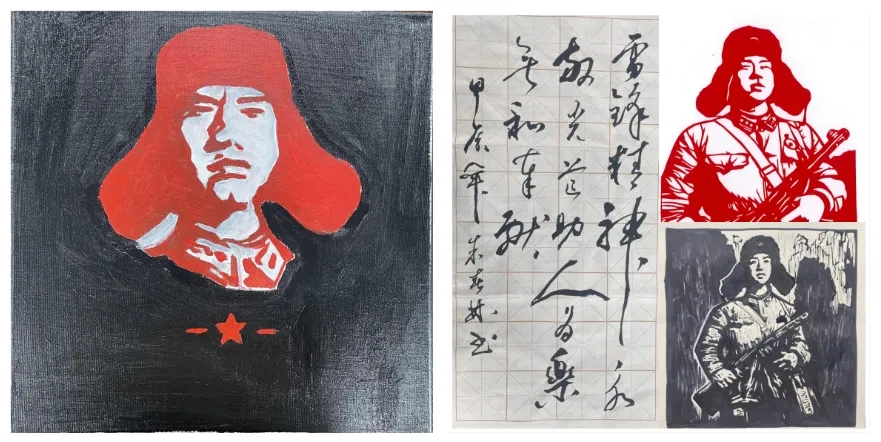 雷锋精神永
放光芒助人为樂
无私奉献
甲辰年 书